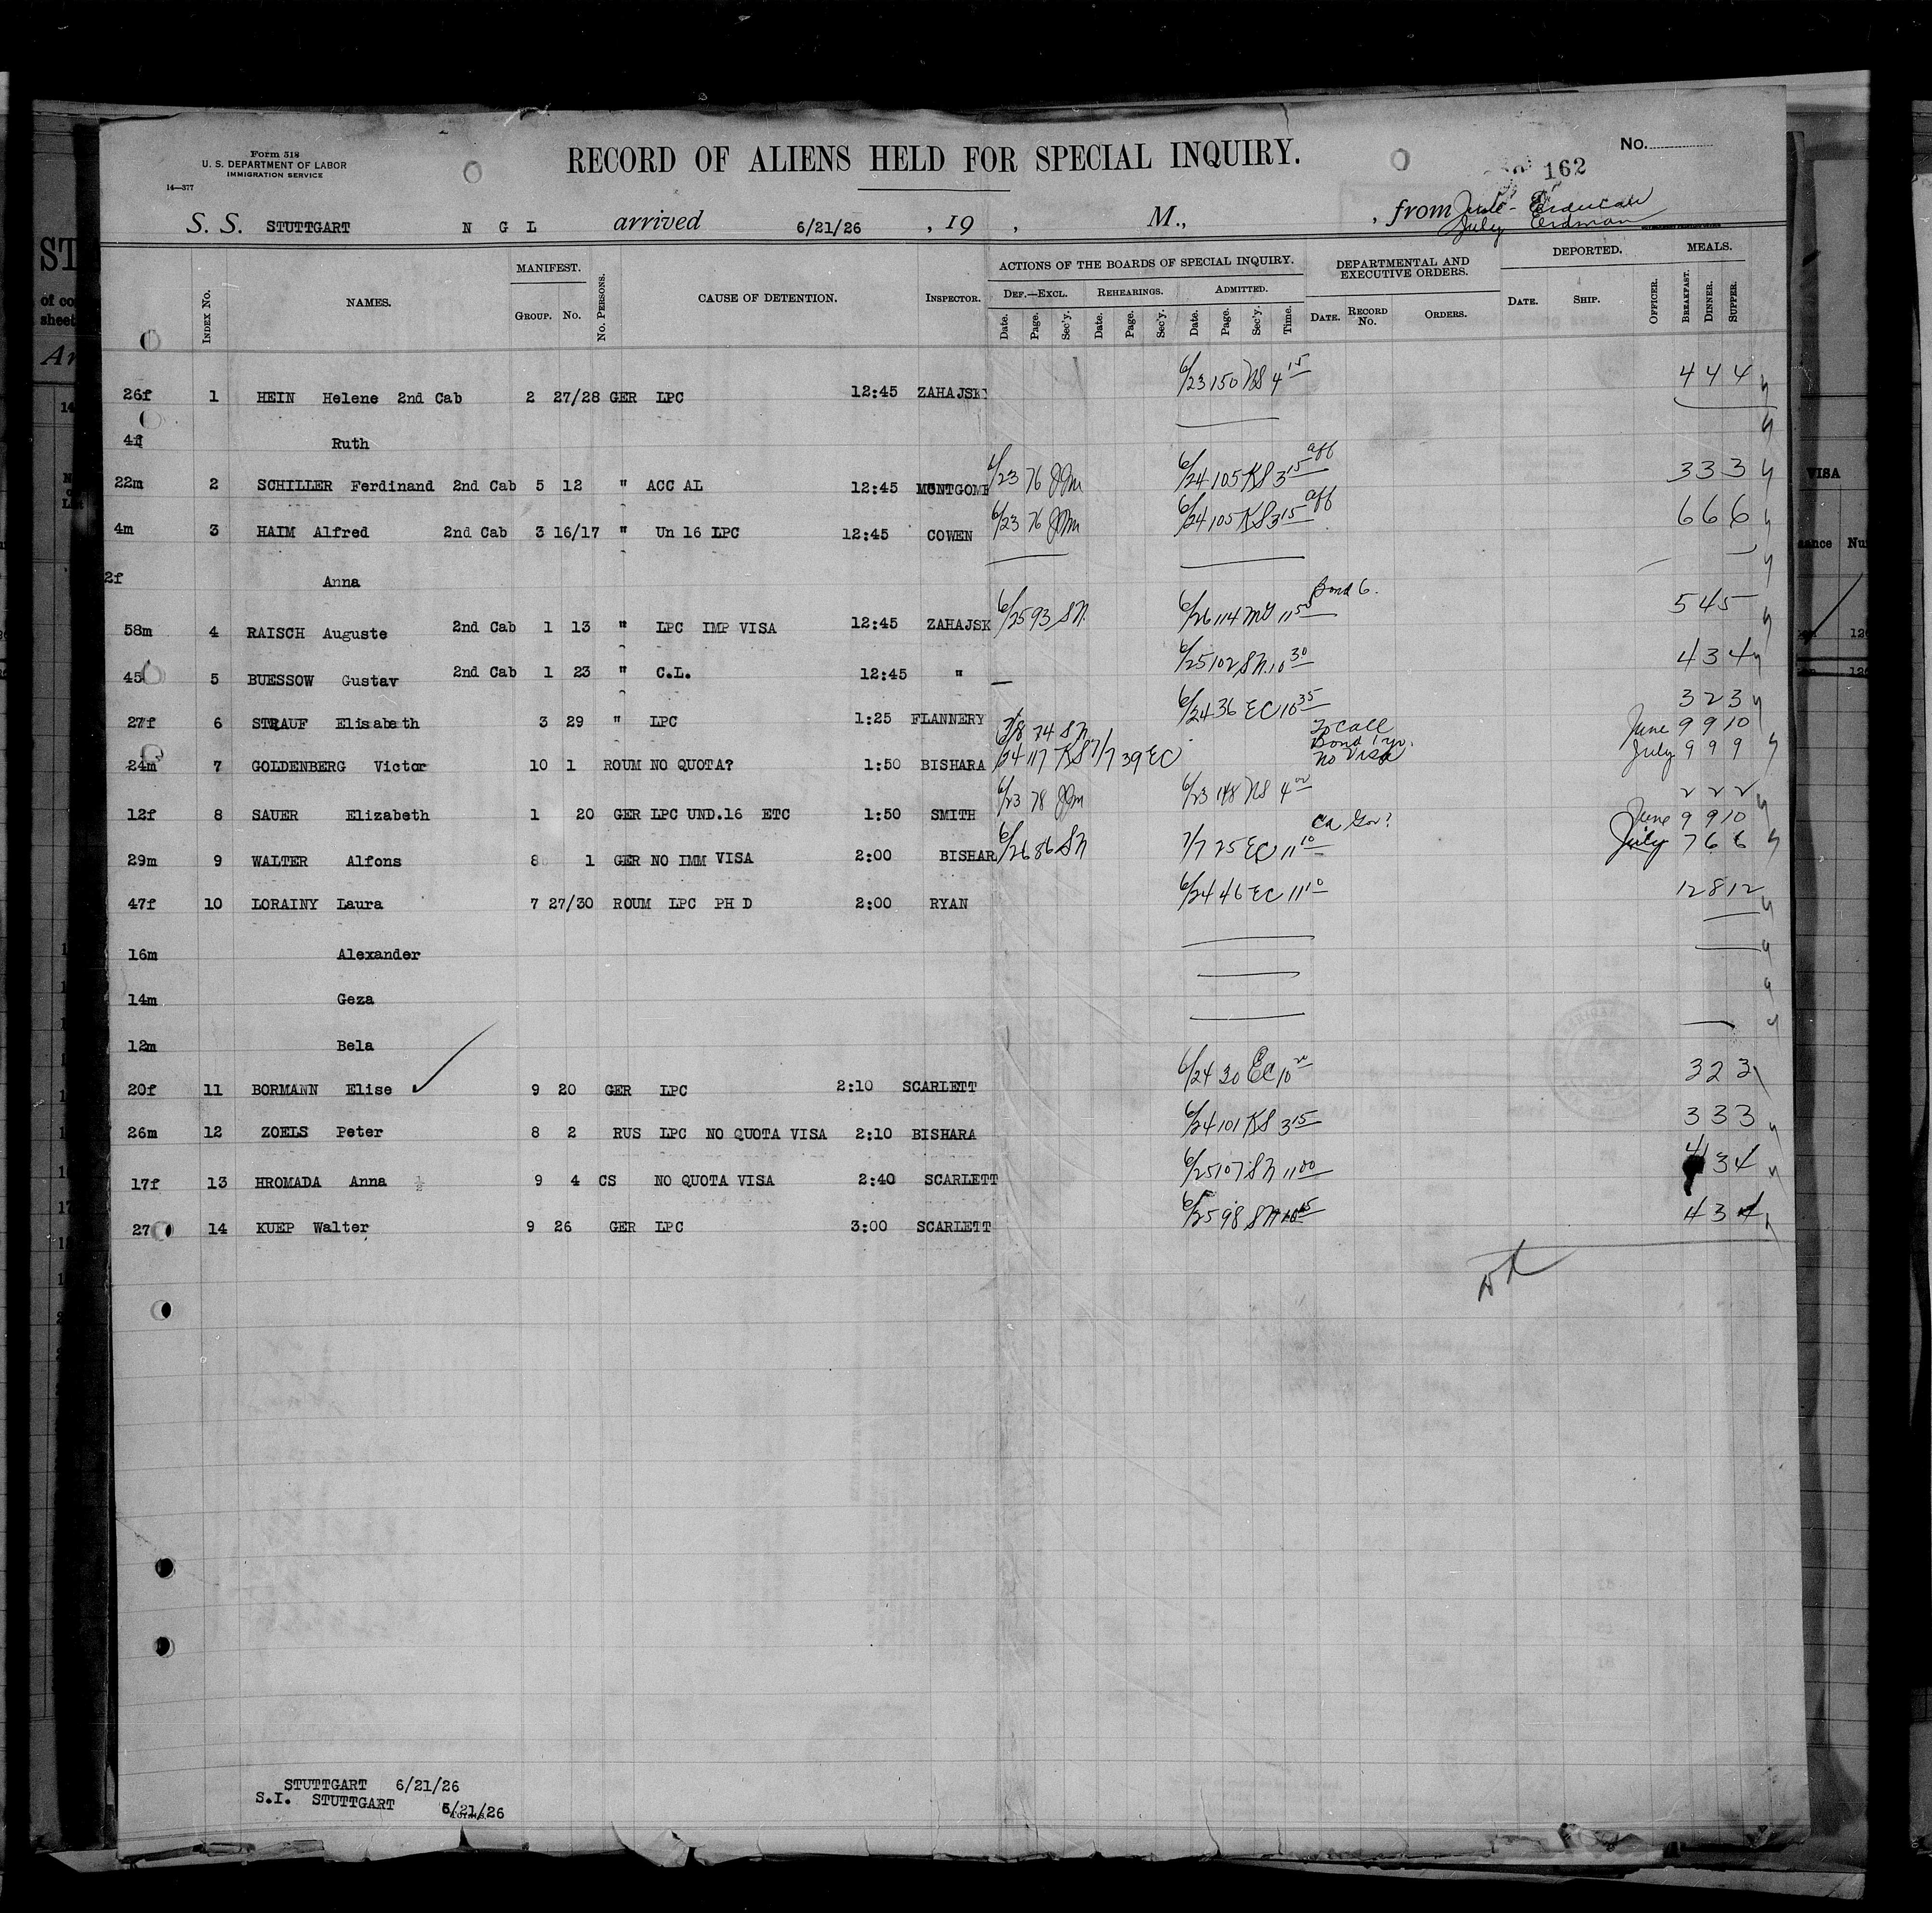 Form 318
U. S. DEPARTMENT OF LABOR
IMMIGRATION SERVICE
14—377
RECORD OF ALIENS HELD FOR SPECIAL INQUIRY.
No.
162
S. S. STUTTGART N G L arrived 6/21/26 , 19 , M., , from
July Erdman
INDEX No. NAMES. MANIFEST. GROUP. No. No. PERSONS. CAUSE OF DETENTION. INSPECTOR. ACTIONS OF THE BOARDS OF SPECIAL INQUIRY. DEF.—EXCL. Date. Page. Sec'y. REHEARINGS. Date. Page. Sec'y. ADMITTED. Date. Page. Sec'y. Time. DEPARTMENTAL AND EXECUTIVE ORDERS. DATE. RECORD No. ORDERS. DEPORTED. DATE. SHIP. OFFICER. MEALS. BREAKFAST. DINNER. SUPPER.
26f 1 HEIN Helene 2nd Cab 2 27/28 GER LPC 12:45 ZAHAJSKY 6/23 150 NS 4 15 4 4 4
4f Ruth
22m 2 SCHILLER Ferdinand 2nd Cab 5 12 " ACC AL 12:45 MONTGOME 6/23 76 JJM 6/24 105 KS 3 15 aff 3 3 3
4m 3 HAIM Alfred 2nd Cab 3 16/17 " Un 16 LPC 12:45 COWEN 6/23 76 JJM 6/24 105 KS 3 15 aff 6 6 6
2f Anna
58m 4 RAISCH Auguste 2nd Cab 1 13 " LPC IMP VISA 12:45 ZAHAJSK 6/25 93 SN 6/26 114 MG 11 50 Bond 6. 5 4 5
45 5 BUESSOW Gustav 2nd Cab 1 23 " C.L. 12:45 " 6/25 102 SN 10 30 4 3 4
27f 6 STRAUF Elisabeth 3 29 " LPC 1:25 FLANNERY 6/24 36 EC 10 35 3 2 3
7/8 74 SN To Call June 9 9 10
24m 7 GOLDENBERG Victor 10 1 ROUM NO QUOTA? 1:50 BISHARA 6/24 117 KS 7/7 39 EC Bond 1 yr. No Visa July 9 9 9
12f 8 SAUER Elizabeth 1 20 GER LPC UND.16 ETC 1:50 SMITH 6/23 78 JJM 6/23 148 NS 4 00 2 2 2
29m 9 WALTER Alfons 8 1 GER NO IMM VISA 2:00 BISHAR 6/26 86 SN 7/7 25 EC 11 10 June 9 9 10
July 7 6 6
47f 10 LORAINY Laura 7 27/30 ROUM LPC PH D 2:00 RYAN 6/24 46 EC 11 10 12 8 12
16m Alexander
14m Geza
12m Bela
20f 11 BORMANN Elise 9 20 GER LPC 2:10 SCARLETT 6/24 30 EC 10 20 3 2 3
26m 12 ZOELS Peter 8 2 RUS LPC NO QUOTA VISA 2:10 BISHARA 6/24 101 KS 3 15 3 3 3
17f 13 HROMADA Anna 1/2 9 4 CS NO QUOTA VISA 2:40 SCARLETT 6/25 107 SN 11 00 4 3 4
27 14 KUEP Walter 9 26 GER LPC 3:00 SCARLETT 6/25 98 SN 4 3 4
STUTTGART 6/21/26
S.I. STUTTGART 6/21/26